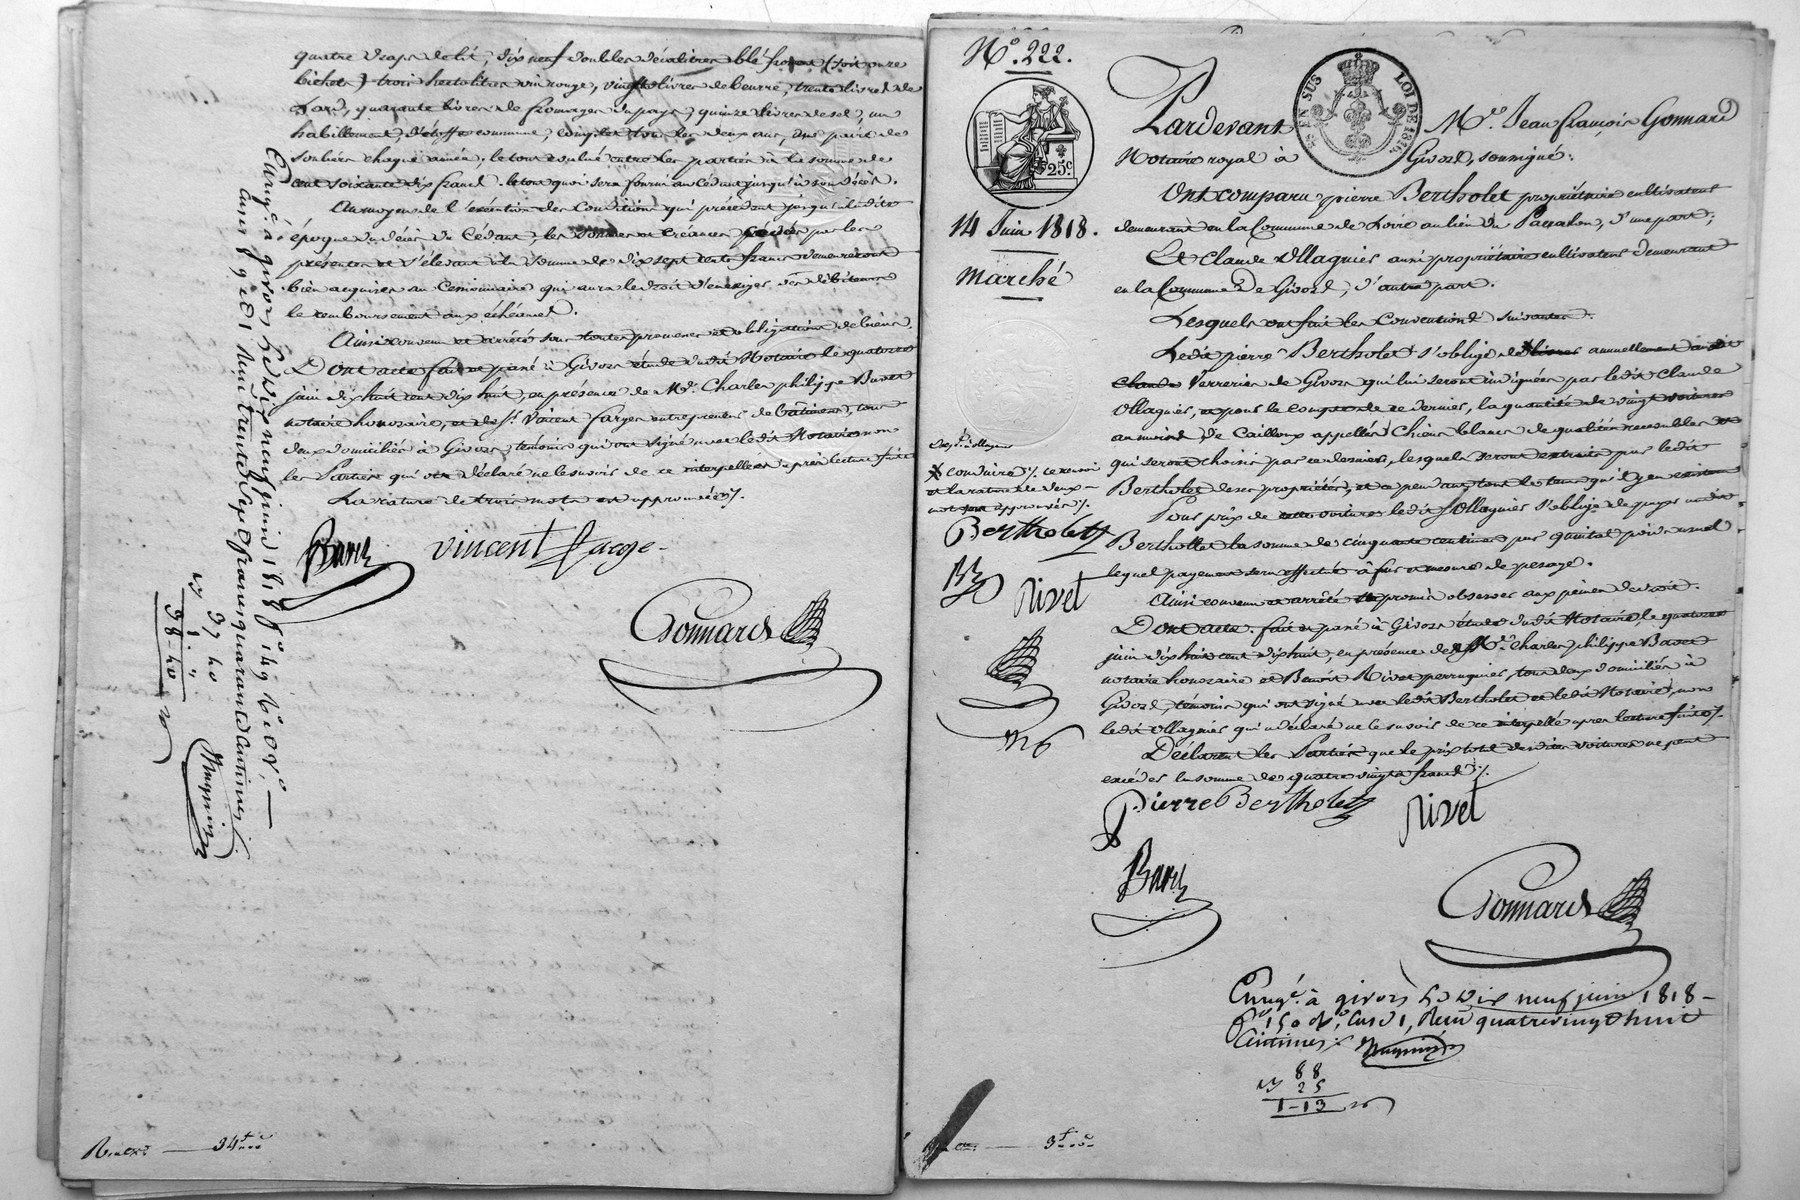 quatre draps de lit, dix neuf doubles décalitres blé froment (soit onze
bichets) trois hectolitres vin rouge, vingt livres de beurre, trente livres de
Lard, quarante livres de fromages du pays, quinze livres de sel, un
habillement d'étoffe commune, complet tous les deux ans, une paire de
souliers chaque année. le tout évalué entre les parties à la somme de
cent soixante dix francs. le tout quoi sera fourni au Cédant jusqu'à son décès.
Au moyen de l'exécution des Conditions qui précèdent jusqu'à la dite
époque du décès du Cédant, les sommes et créances cédées par les
présentes et s'élevant à la somme de dix sept cents francs demeureront
bien acquises au Cessionnaire qui aura le droit d'en exiger des débiteurs
le remboursement aux échéances.
Ainsi convenu et arrêté sous toutes promesses et obligations de biens.
Dont acte fait et passé à Givors étude dudit Notaire le quatorze
juin dix huit cent dix huit, en présence de Me. Charles philippe Baret
notaire honoraire, et de Sr. Vincent farges entrepreneur de bâtimens, tous
deux domiciliés à Givors, témoins qui ont signé avec ledit Notaire non
les Parties qui ont déclaré ne le savoir de ce interpellées après lecture faite
La rature de trois mots est approuvée %.
Baret
vincent farge
Gonnard
Enrgé. à givors le dix neuf juin 1818 fo. 149 Vo.
Cases 9 et 1 Reçu trente sept francs quarante centimes
37 40
1 "
38-40
34
N°. 222.
EN SUS
LOI DE 1816.
25c
14 Juin 1818.
Marché
Pardevant Me. Jean françois Gonnard
Notaire royal à Givors, soussigné:
Ont comparu pierre Bertholet propriétaire cultivateur
demeurant en la Commune de Loire au lieu du Passahon, d'une part;
Et Claude Ollagnier aussi propriétaire cultivateur demeurant
en la Commune de Givors, d'autre part.
Lesquels ont fait les Conventions suivantes.
Ledit pierre Bertholet s'oblige de livrer annuellement
Claude Verreries de Givors qui lui seront indiquées par ledit Claude
Ollagnier, et pour le compte de ce dernier, la quantité de vingt voitures
au moins de Cailloux appellés Chiens blancs de qualité recevables et
qui seront choisis par ce dernier, lesquels seront extraits par ledit
Bertholet de ses propriétés, et ce pendant tout le tems qu'il y en existera
Pour prix de cette voiture ledit Ollagnier s'oblige de payer audit
Berthollet la somme de cinquante centimes par quintal poids usuel
lequel payement sera effectué à fur et mesure de pesage.
Ainsi convenu et arrêté promis observer aux peines de droit.
Dont acte. fait et passé à Givors étude dudit Notaire, le quatorze
juin dix huit cent dix huit, en présence de Me. Charles philippe Baret
notaire honoraire et Benoit Rivet perruquier, tous deux domiciliés à
Givors, témoins qui ont signé avec ledit Bertholet et ledit Notaire, non
ledit Ollagnier qui a déclaré ne le savoir de ce interpellé après lecture faite %.
Déclarent les Parties que le prix total desdites voitures ne peut
excéder la somme de quatre vingts francs %.
conduire %. ce renvoi
et la rature de deux
mots approuvés %.
Bertholet
B
Rivet
Pierre Bertholet
Rivet
Baret
Gonnard
Enrgé. à givors le dix neuf juin 1818 -
fo. 150 Vo. Case 1, Reçu quatre vingt huit
Centimes
88
25
1-13
3